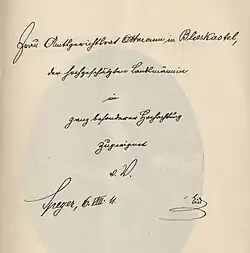 Frau Amtsgerichtsrat Ottmann, in Blieskastel,
der hochgeschätzten Landsmännin
in
ganz besonderer Hochachtung
zugeeignet
v. V.
Speyer, 6. VIII.